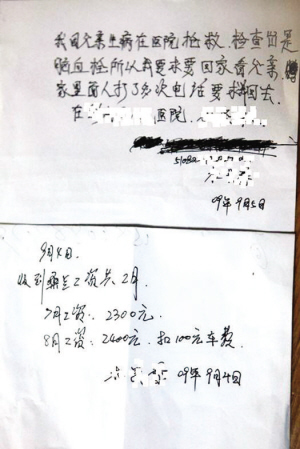 我因父亲生病在医院抢救.检查出是
脑血栓所以我要求要回家看父亲.
家里面人打了多次电话要求我回去.
在 医院.
09年9月5日
9月4日.
收到 工资共2月.
7月工资: 2300元.
8月工资: 2400元. 扣100元车费.
09年9月4日